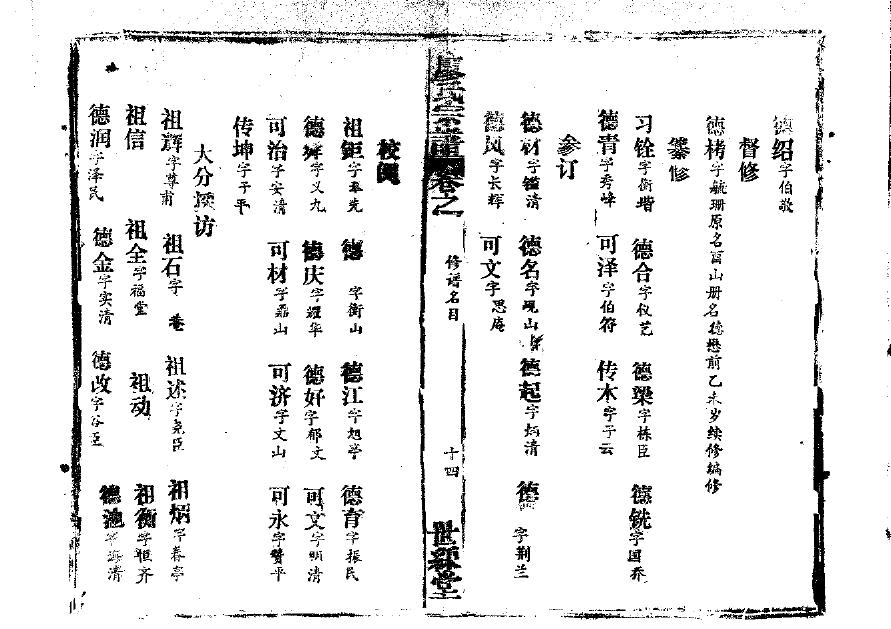 德绍字伯敬
督修
德栲字毓珊原名酉山册名德懋前乙未岁续修编修
纂修
习铨字衡堦 德合字仪艺 德梁字栋臣 德铣字国乔
德青字秀峰 可泽字伯符 传木字子云
参订
德材字鉴清 德名字岘山 德起字炳清 德 字荆兰
德风字长辉 可文字思庵
廖氏宗谱 卷之一
修谱名目
十四
世 堂
校阅
祖钜字奉先 德 字衡山 德江字旭亭 德育字振民
德舜字义九 德庆字耀华 德好字郁文 可文字明清
可治字安清 可材字磊山 可济字文山 可永字赞平
传坤字子平
大分 访
祖辉字尊甫 祖石字 祖述字尧臣 祖炳字春亭
祖信 祖全字福堂 祖动 祖衡字恒齐
德润字泽民 德金字实清 德改字谷臣 德池字海清